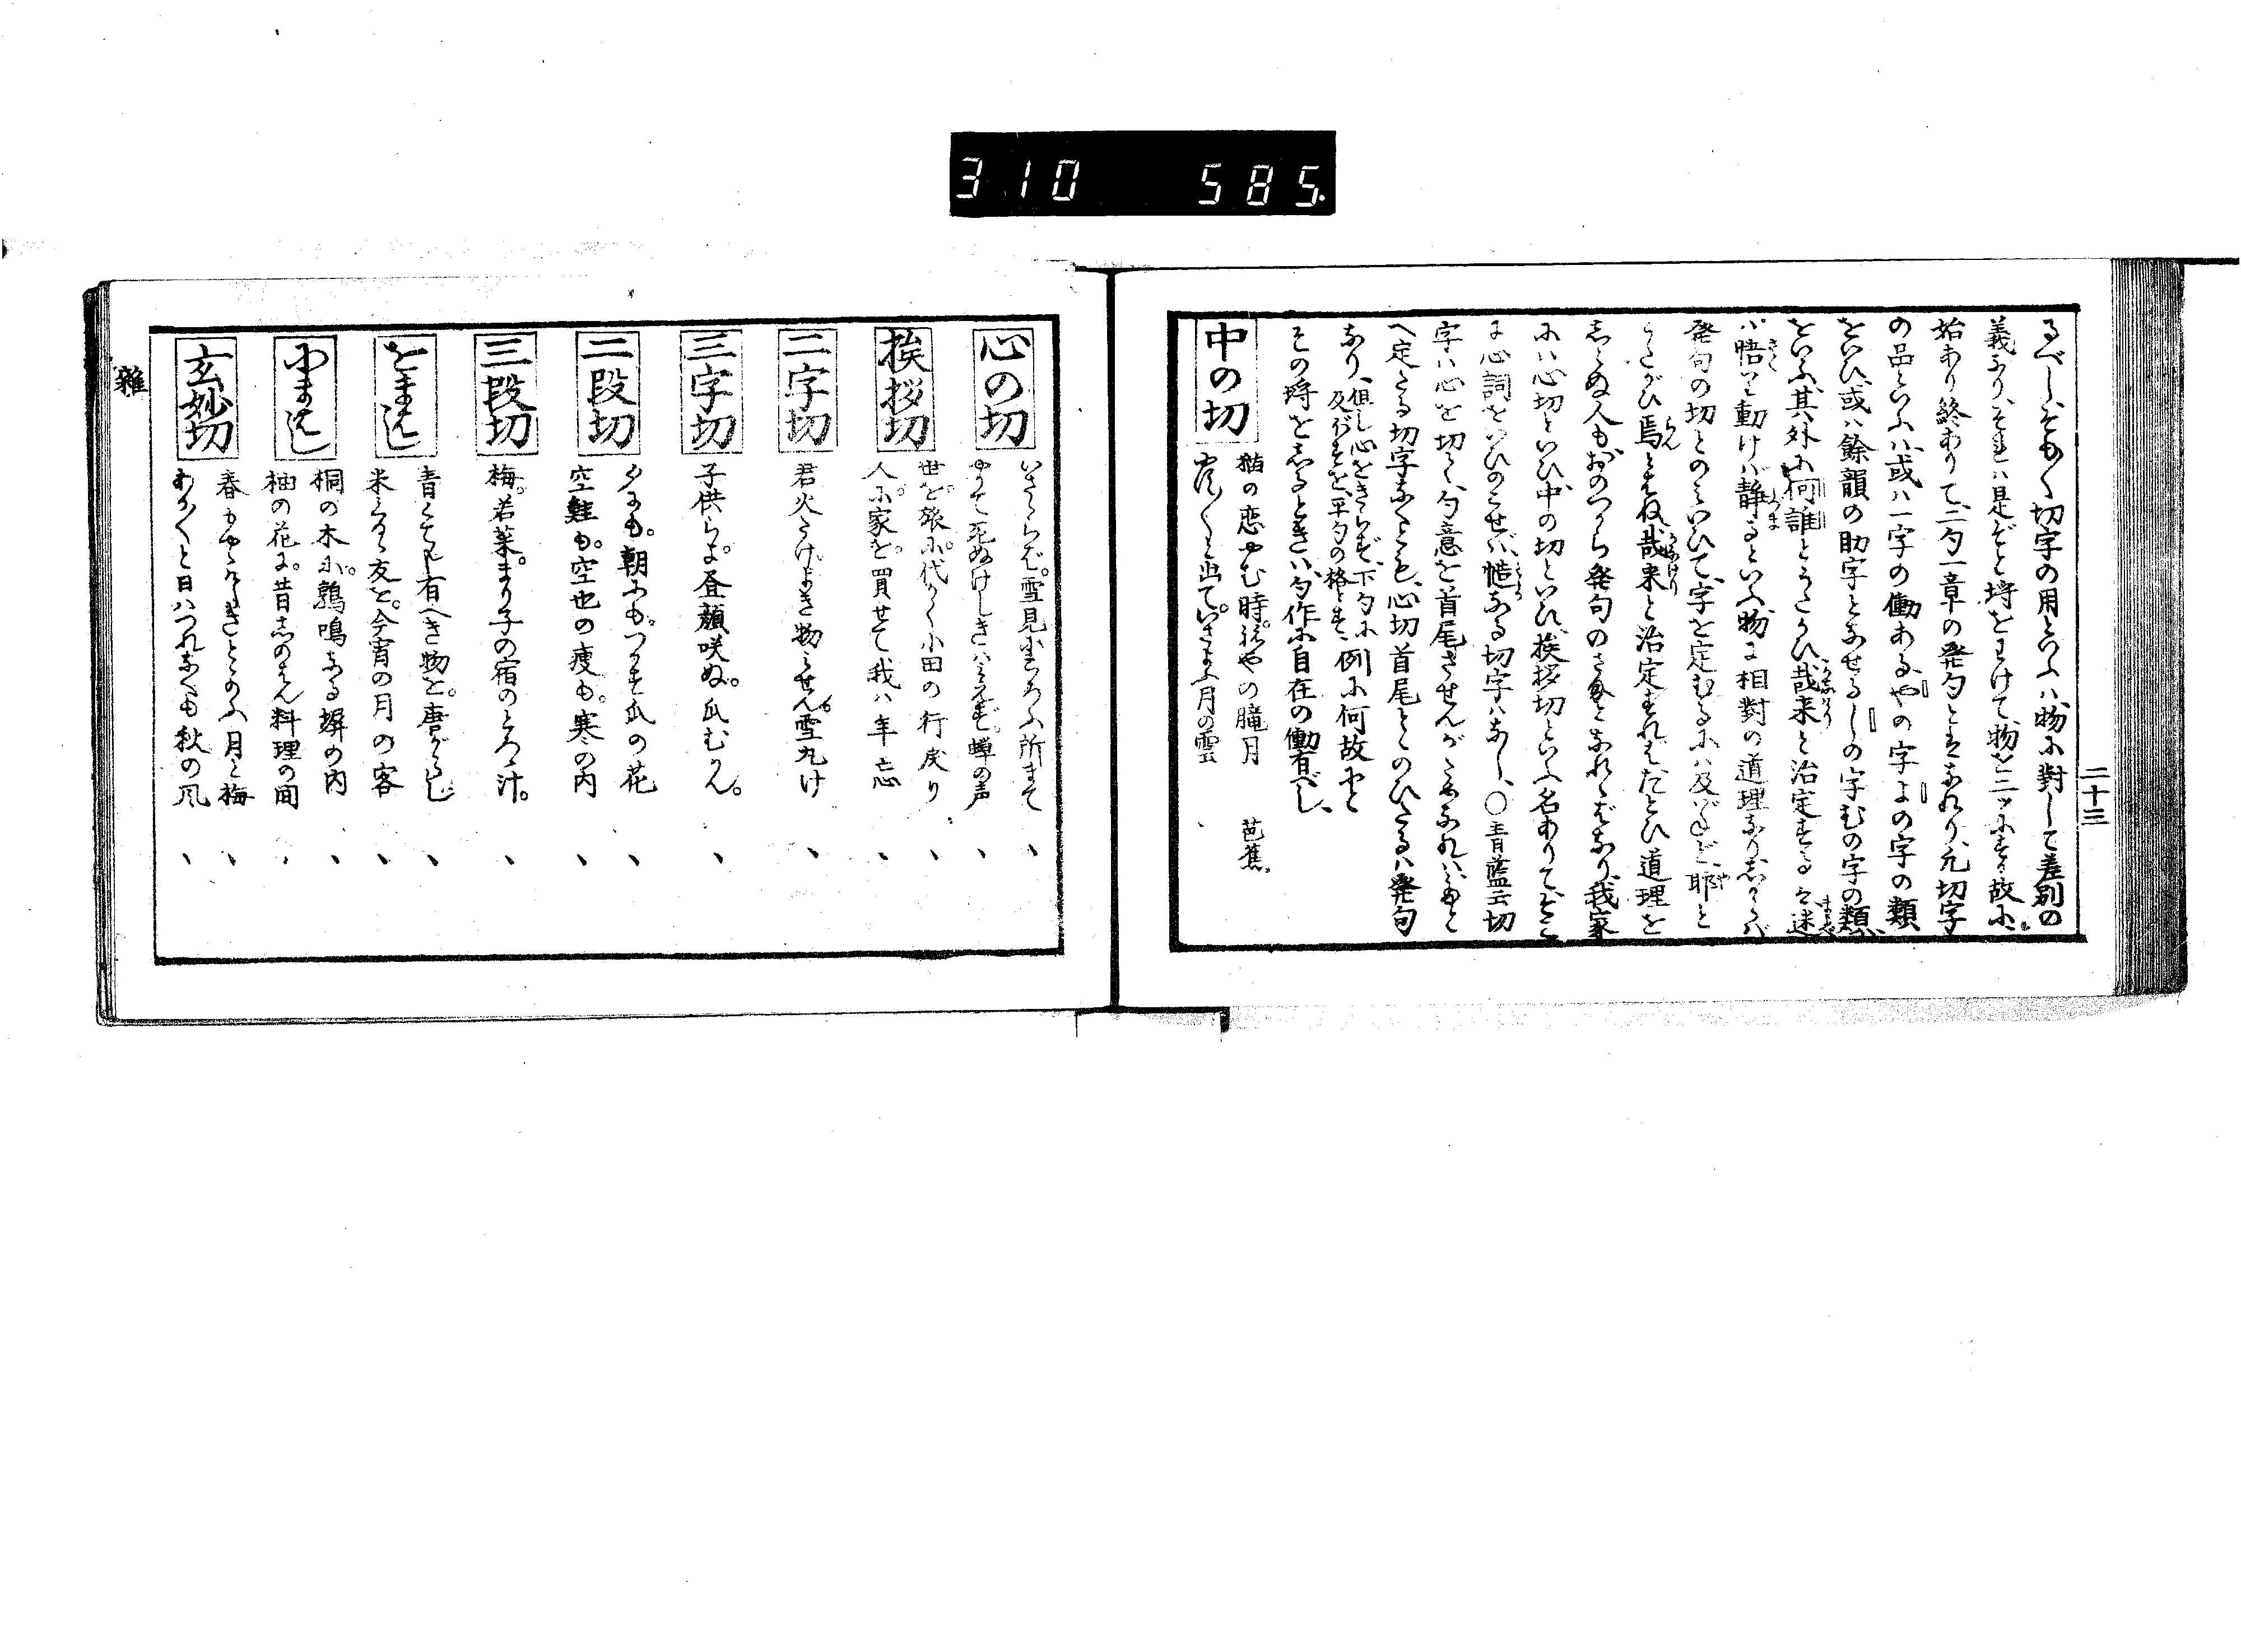 310 585
二十三
るべし、そも〱切字の用といふハ、物に對して差別の
義なり、それハ是ぞと埒をわけて、物を二ッにする故に、
始あり終ありて、二句一章の発句とはなれり、元切字
の品といふハ、或ハ一字の働あるやの字よの字の類
をいひ、或ハ餘韻の助字となせるしの字むの字の類
をいふ、其外に何誰とうたがひ哉来と治定する
バ悟て動けバ静るといへ物に相對の道理なりしからバ
発句の切とのミいひて、字を定むるにハ及バねど、耶と
うたがひ焉とはね哉来と治定すれバたとひ道理を
しらぬ人もおのづから発句のさまとなれバなり、我家
にハ心切といひ、中の切といひ、挨拶切といへ名ありて
に心詞をいひのこせバ、慥なる切字ハなし、〇青藍云切
字ハ心を切て、句意を首尾させんがためなれハ
へ定たる切字なくとも、心切首尾とゝのひたるハ発句
なり、但し心をきらず、下句に
及バずを、平句の格とす、例に何故にと
その埒をしるときハ、句作に自在の働有べし、
中の切
猫の恋やむ時。ねやの朧月 芭蕉
〱と出て。いさよふ月の雲 、
心の切
いざゝらば。雪見にころふ所まて 、
やかて死ぬけしきハミえず。蝉の声 、
挨拶切
世を。旅に。代かく小田の行戻り 、
人に。家を。買せて我ハ年忘 、
二字切
君火たけ。よき物ミせん。雪丸け 、
三字切
子供らよ。昼顔咲ぬ。瓜むかん。 、
二段切
夕にも。朝にも。つかず瓜の花 、
空鮭も。空也の痩も。寒の内 、
三段切
梅。若菜。まり子の宿のとろゝ汁。 、
をまはし
青くても有へき物を。唐がらし 、
米くるゝ友を。今宵の月の客 、
にまはし
桐の木に。鶉鳴なる塀の内 、
柚の花に。昔しのはん料理の間 、
玄妙切
春もやゝけしきとゝのふ月と梅 、
あか〱と日ハつれなくも秋の風 、
雑